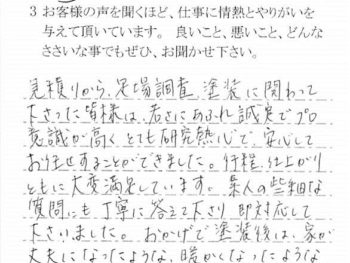 3 お客様の声を聞くほど、仕事に情熱とやりがいを
与えて頂いています。良いこと、悪いこと、どんな
ささいな事でもぜひ、お聞かせ下さい。
見積りから、足場調査、塗装に関わって
下さった皆様は、若さにあふれ誠実でプロ
意識が高く、とても研究熱心で、安心して
お任せすることができました。行程、仕上がり
ともに大変満足しています。素人の些細な
質問にも丁寧に答えて下さり 即対応して
下さいました。おかげで塗装後は、家が
丈夫になったような、暖かくなったような